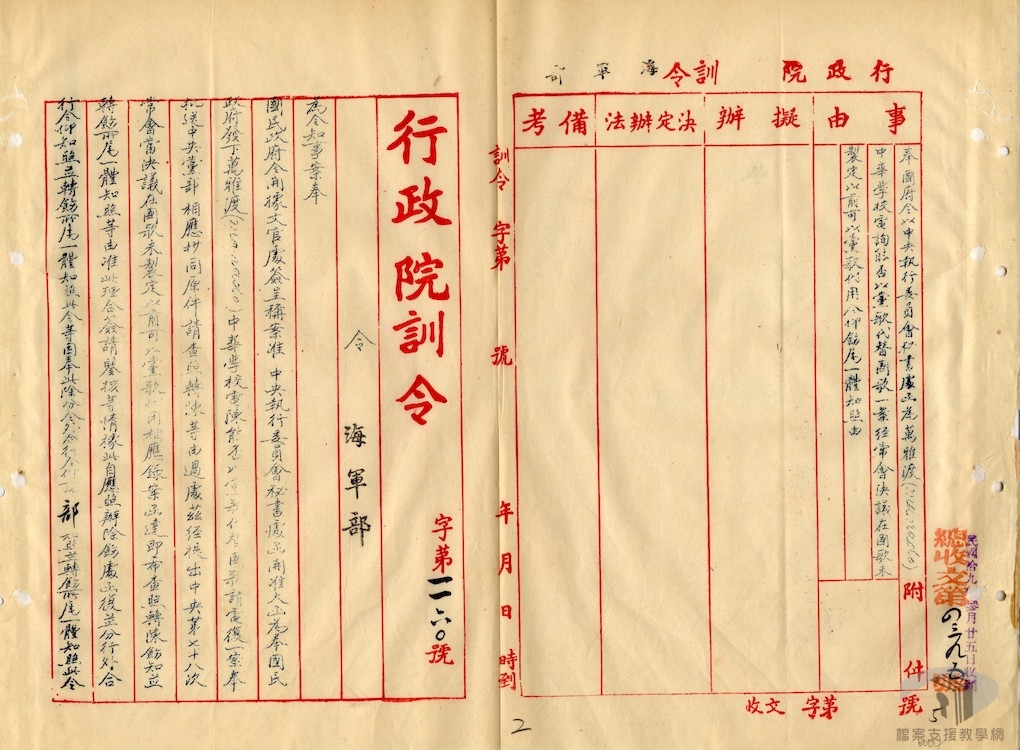 行政院訓令海軍部
事由
擬辦
決定辦法
備考
奉國府令以中央執行委員會秘書處函為萬雅渡
中華學校電詢能否以黨歌代替國歌一案經常會決議在國歌未
製定以前可以黨歌代用令仰飭屬一體知照由
附件
收文字第號
訓令字第號
年月日時到
總收文第
號
民國拾九年參月廿五日收到
5
行政院訓令
字第一一六〇號
令海軍部
為令知事案奉
國民政府令開據文官處簽呈稱案准中央執行委員會秘書處函開准大函為奉國民
政府發下萬雅渡中華學校電陳能否以黨歌代替國歌請電復一案奉
批送中央黨部相應抄同原件請查照轉陳等由過處茲經提出中央第七十八次
常會當決議在國歌未製定以前可以黨歌代用相應錄案函達即希查照轉陳飭知並
轉飭所屬一體知照等由准此理合簽請鑒核等情據此自應照辦除飭處函復並分行外合
行令仰知照並轉飭所屬一體知照此令等因奉此除分令外合行令仰該部知照並轉飭所屬一體知照此令
2
檔案支援教學網